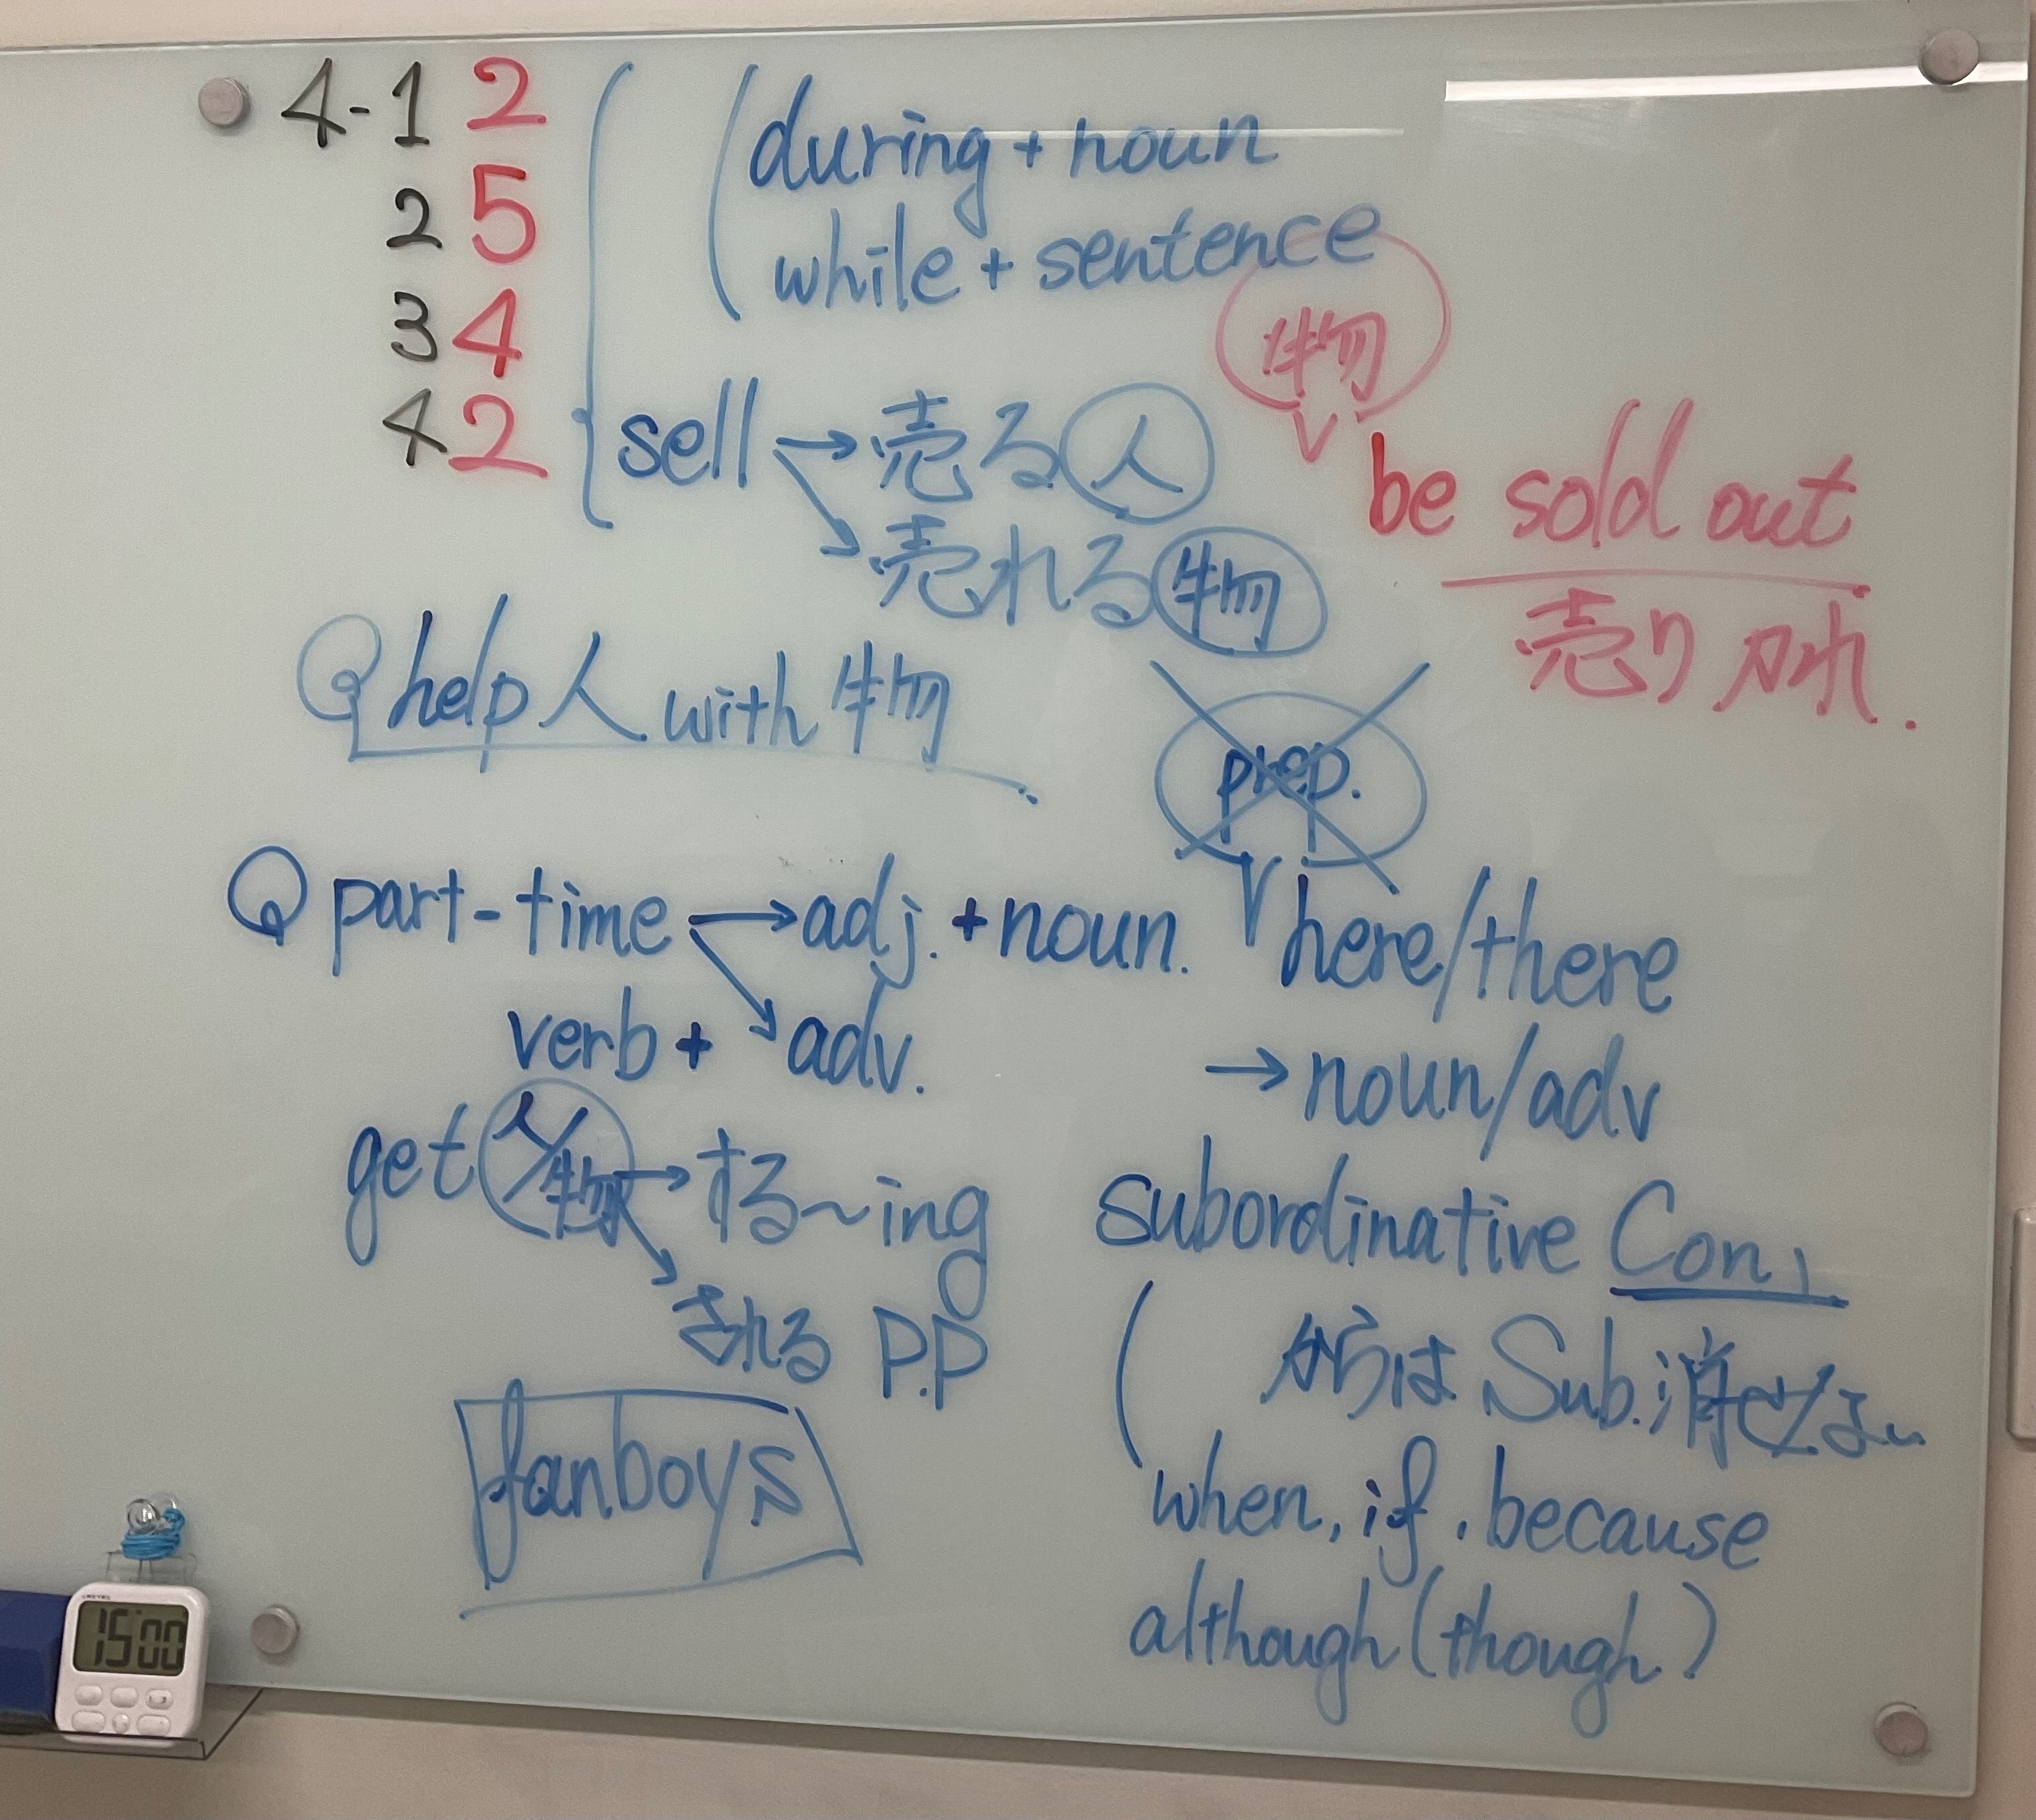 4-1 2
2 5
3 4
4 2
during + noun
while + sentence
sell → 売る 人
売れる 物
物
be sold out
売り切れ.
help 人 with 物
prep.
part-time → adj. + noun.
verb + adv.
here/there
→ noun/adv
get 人/物 → する~ing
される P.P
fanboys
subordinative Con,
からは Sub. 消せない
when, if, because
although (though)
15:00